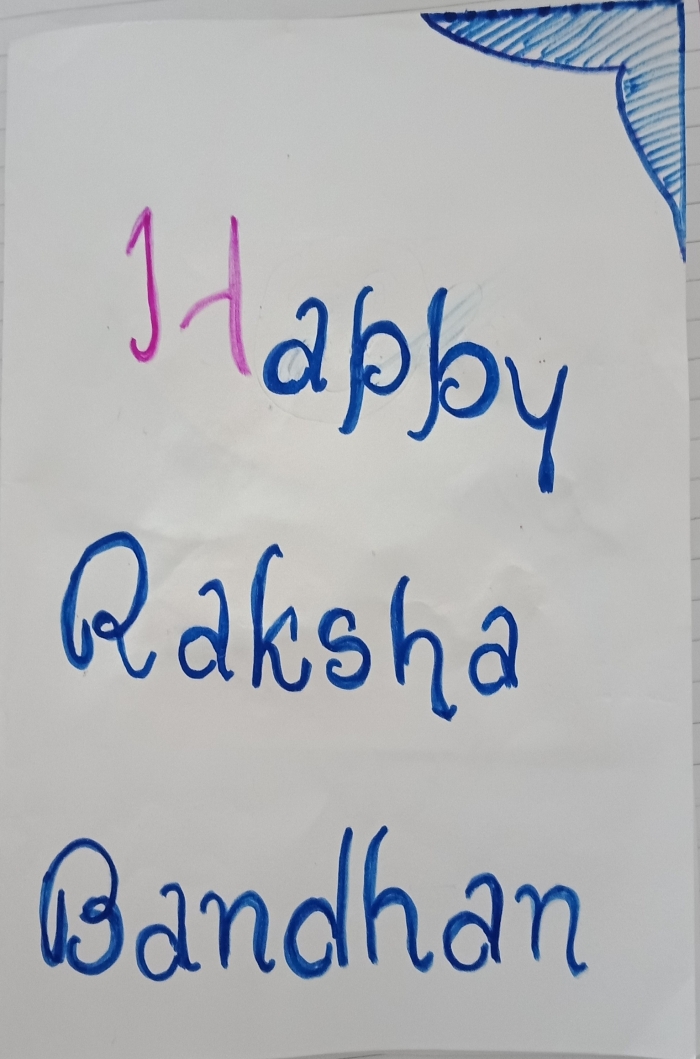 Happy
Raksha
Bandhan